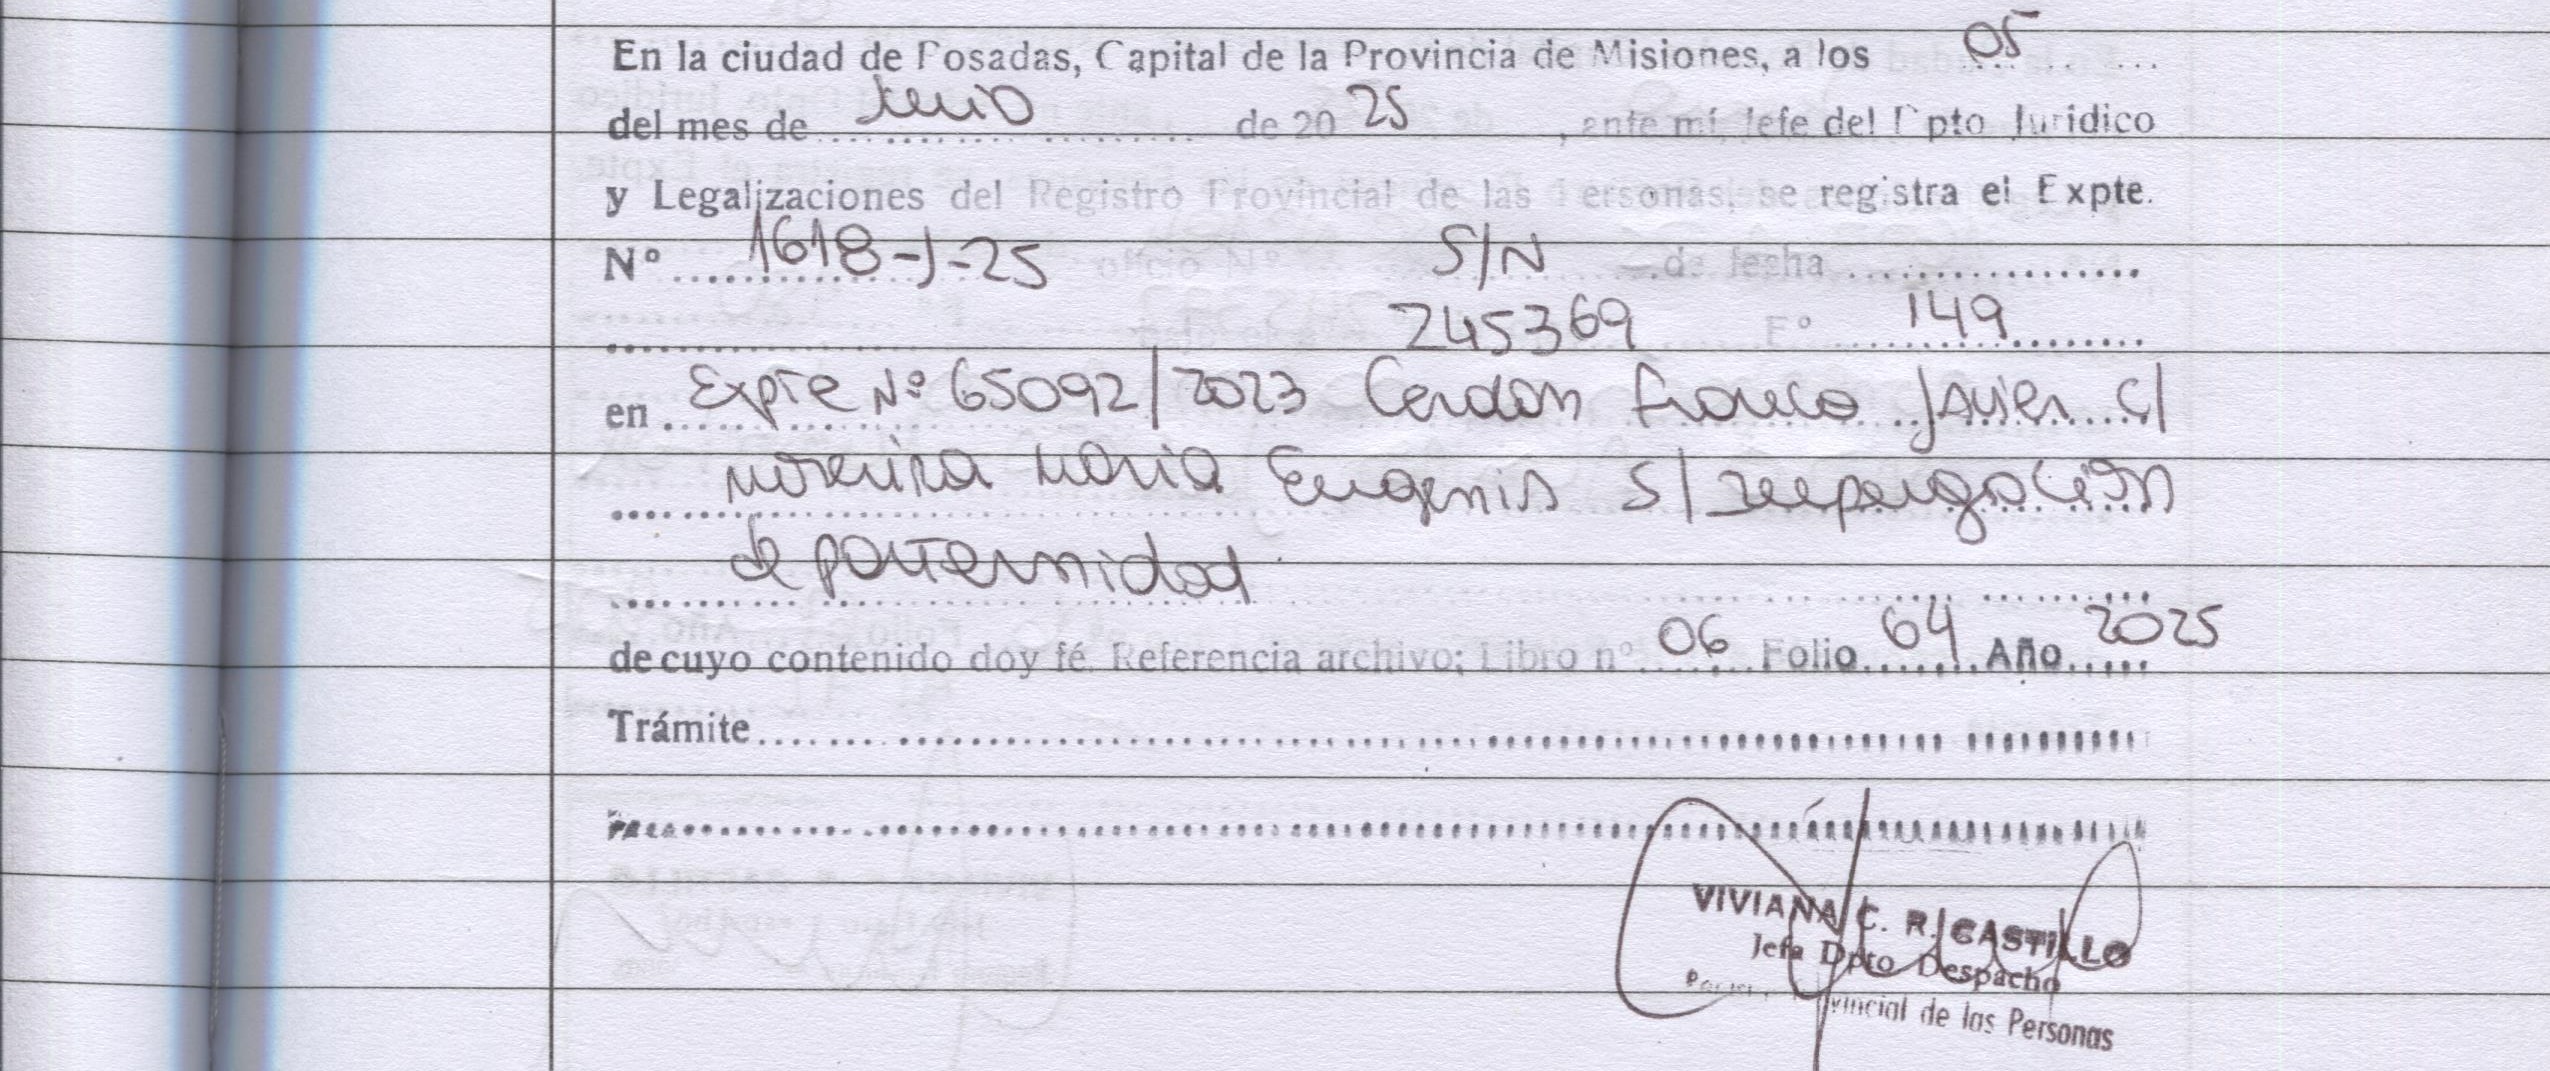 En la ciudad de Posadas, Capital de la Provincia de Misiones, a los 05
del mes de Junio de 20 25, ante mí, Jefe del Dpto Jurídico
y Legalizaciones del Registro Provincial de las Personas, se registra el Expte.
Nº 1618-J-25 S/N de fecha
245369 Fº 149
en Expte Nº 65092/2023 Cerdan Franco Javier c/
Moreira Maria Eugenia S/ impugnación
de paternidad
de cuyo contenido doy fé. Referencia archivo; Libro nº 06 Folio 64 Año 2025
Trámite
VIVIANA C. R. CASTILLO
Jefa Dpto Despacho
Provincial de las Personas